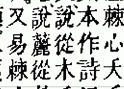 棘心夭
本作詩
說從木
說麓從
又易棘